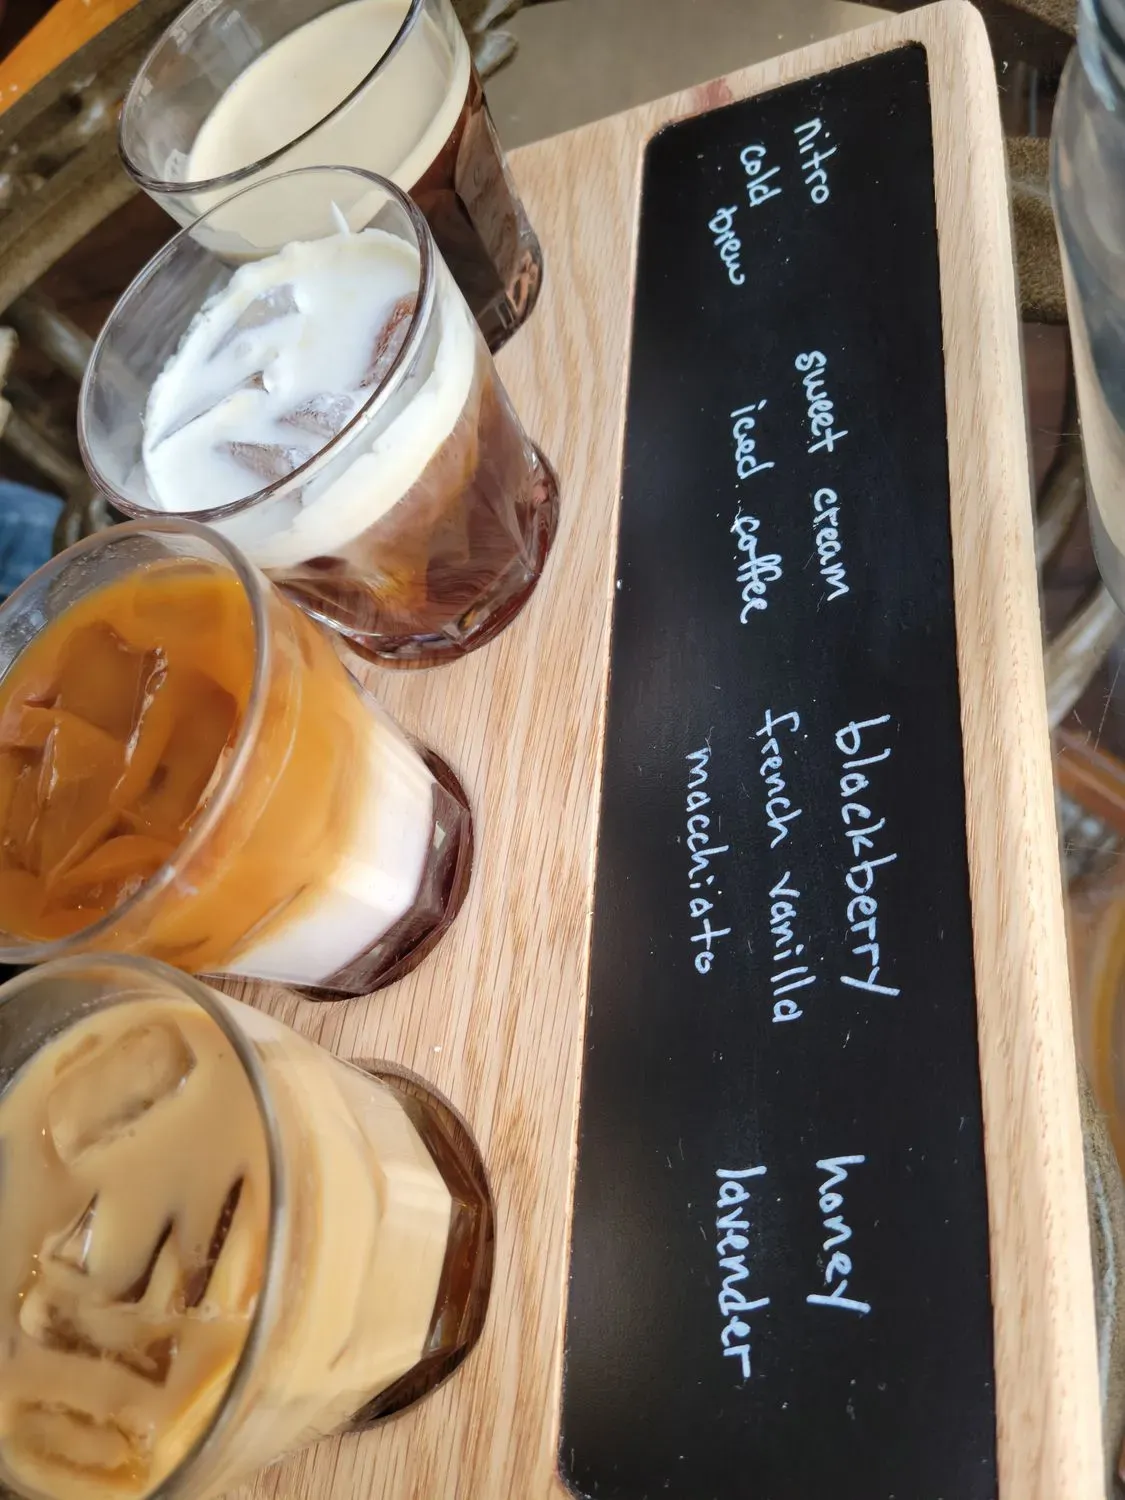 nitro
cold
brew
sweet cream
iced coffee
blackberry
french vanilla
macchiato
honey
lavender